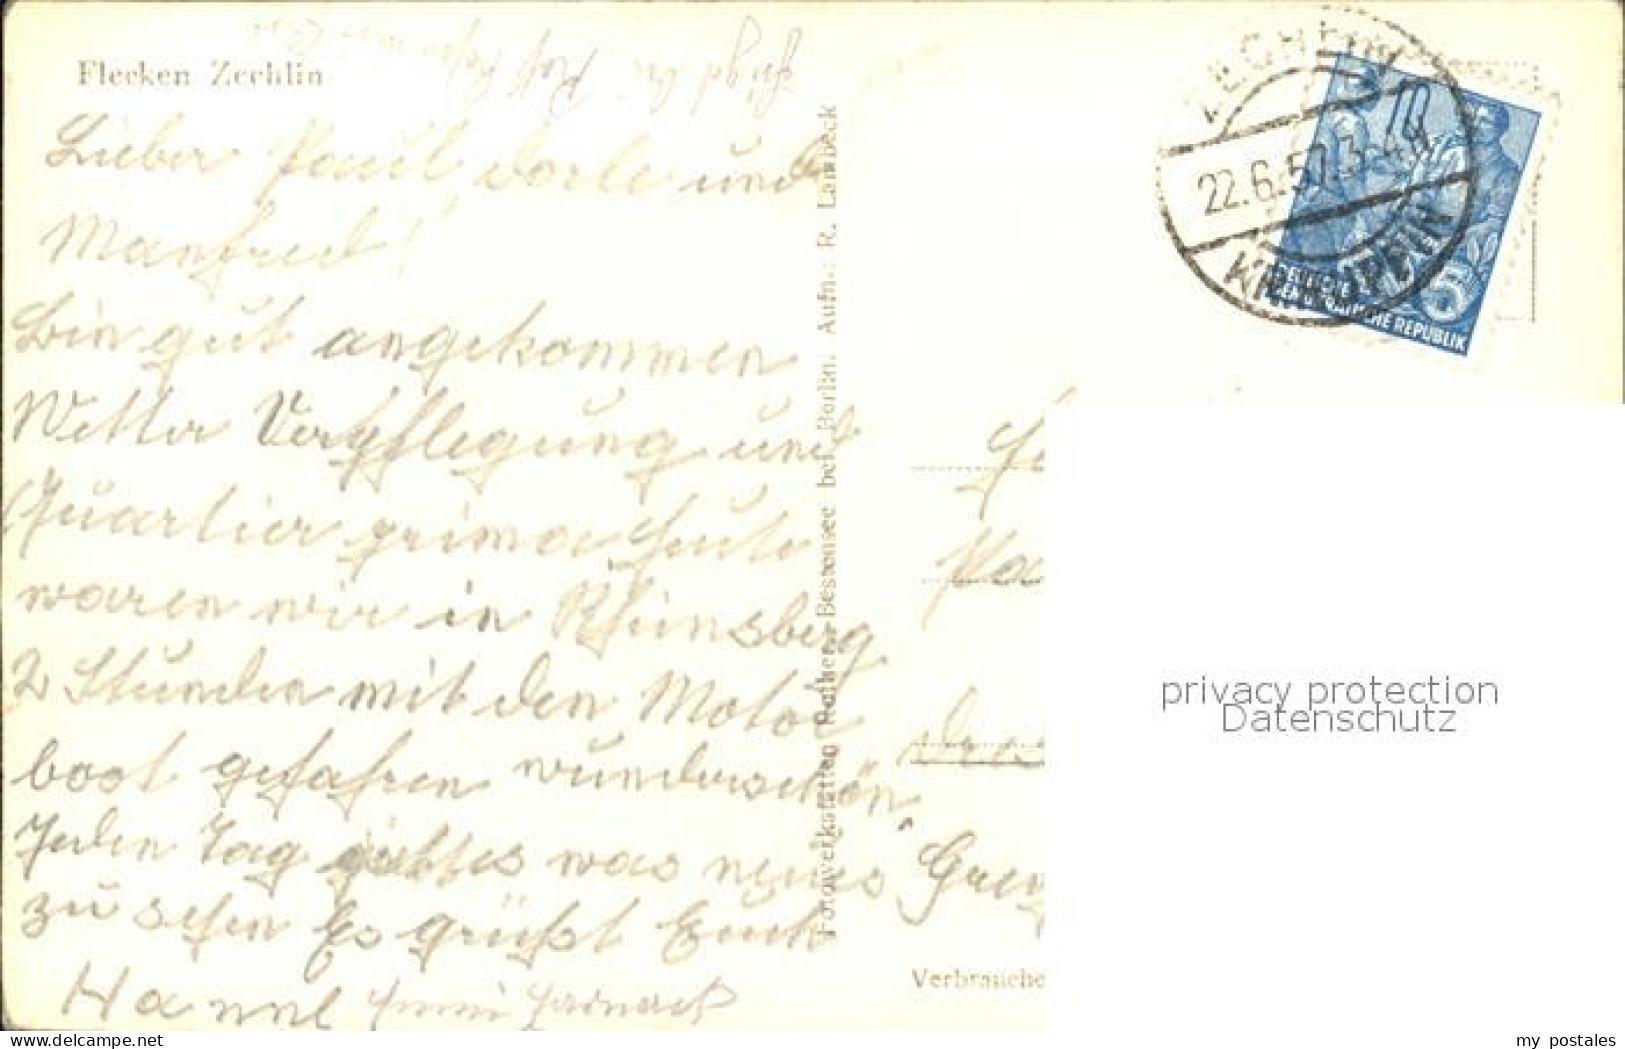 Flecken Zechlin
Lieber Paul, Dorle und
Manfred!
Bin gut angekommen
Wetter Verpflegung und
Quartier prima heute
waren wir in Rheinsberg
2 Stunden mit den Motor
boot gefahren wunderschön.
Jeden Tag gibt es was neues
zu sehen Es grüßt Euch
Hanne
Fotowerkstätten Rathen, Bestensee bei Berlin. Aufn.: R. Lambeck
ZECHLIN
22.6.57.3-4
KR. NEURUPPIN
DEUTSCHE
DEMOKRATISCHE REPUBLIK
5
Verbrauche
privacy protection
Datenschutz
www.akpool.de
my postales